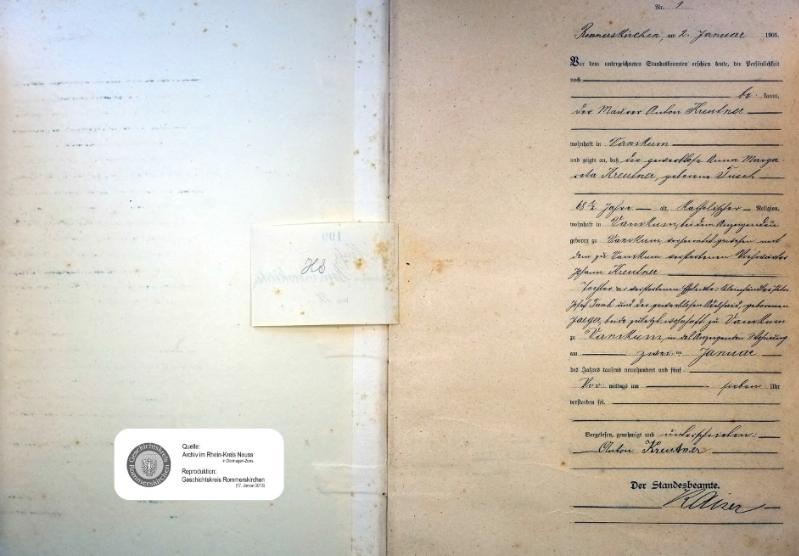 199
HS
Quelle:
Archiv im Rhein-Kreis Neuss
in Dormagen-Zons
Reproduktion:
Geschichtskreis Rommerskirchen
Geschichtskreis
Rommerskirchen
Nr. 1
Rommerskirchen, am 2. Januar 190
Vor dem unterzeichneten Standesbeamten erschien heute, der Persönlichkeit
nach
be kannt,
der Maurer Anton Kreutner
wohnhaft in Vanikum
und zeigte an, daß die gewerblose Anna Marga-
reta Kreutner, geborene
Jahre katholischer Religion,
wohnhaft in Vanikum, bei dem Anzeigenden
geboren zu Vanikum, verheiratet gewesen mit
dem zu Vanikum verstorbenen
Johann Kreutner
Tochter der verstorbenen Eheleute
Josef und der gewerblosen geborenen
Jaeger, beide zuletzt wohnhaft zu Vanikum
zu Vanikum, in des Anzeigenden Wohnung
am zwei ten Januar
des Jahres tausend neunhundert und fünf
Vor mittags um sieben Uhr
verstorben sei.
Vorgelesen, genehmigt und unterschrieben:
Anton Kreutner
Der Standesbeamte.
Kaiser